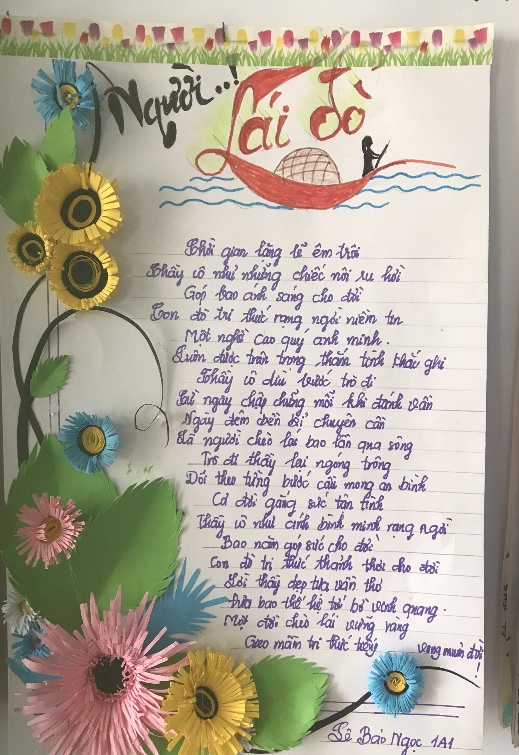 Người..!
Lái đò
Thời gian lặng lẽ êm trôi
Thầy cô như những chiếc nôi ru hời
Góp bao ánh sáng cho đời
Con đò tri thức rạng ngời niềm tin
Một nghề cao quý anh minh.
Luôn được trân trọng, thắm tình khắc ghi
Thầy cô dìu bước trò đi
Từ ngày chập chững mỗi khi đánh vần
Ngày đêm bền bỉ chuyên cần
Là người chèo lái bao lần qua sông
Trò đi thầy lại ngóng trông
Dõi theo từng bước cầu mong an bình
Cả đời gắng sức tận tình
Thầy cô như ánh bình minh rạng ngời
Bao năm góp sức cho đời
Con đò tri thức thảnh thơi cho đời
Lời thầy đẹp tựa vần thơ
Đưa bao thế hệ tới bờ vinh quang.
Một đời chèo lái vững vàng
Gieo mầm tri thức vọng muôn đời!
Lê Bảo Ngọc 1A1